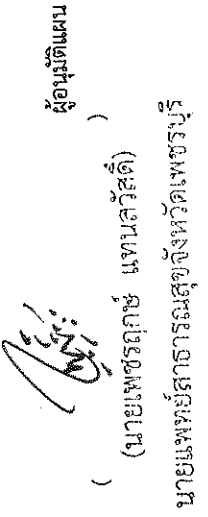 ผู้อนุมัติแผน
( )
(นายเพชรฤกษ์ แทนสวัสดิ์)
นายแพทย์สาธารณสุขจังหวัดเพชรบุรี